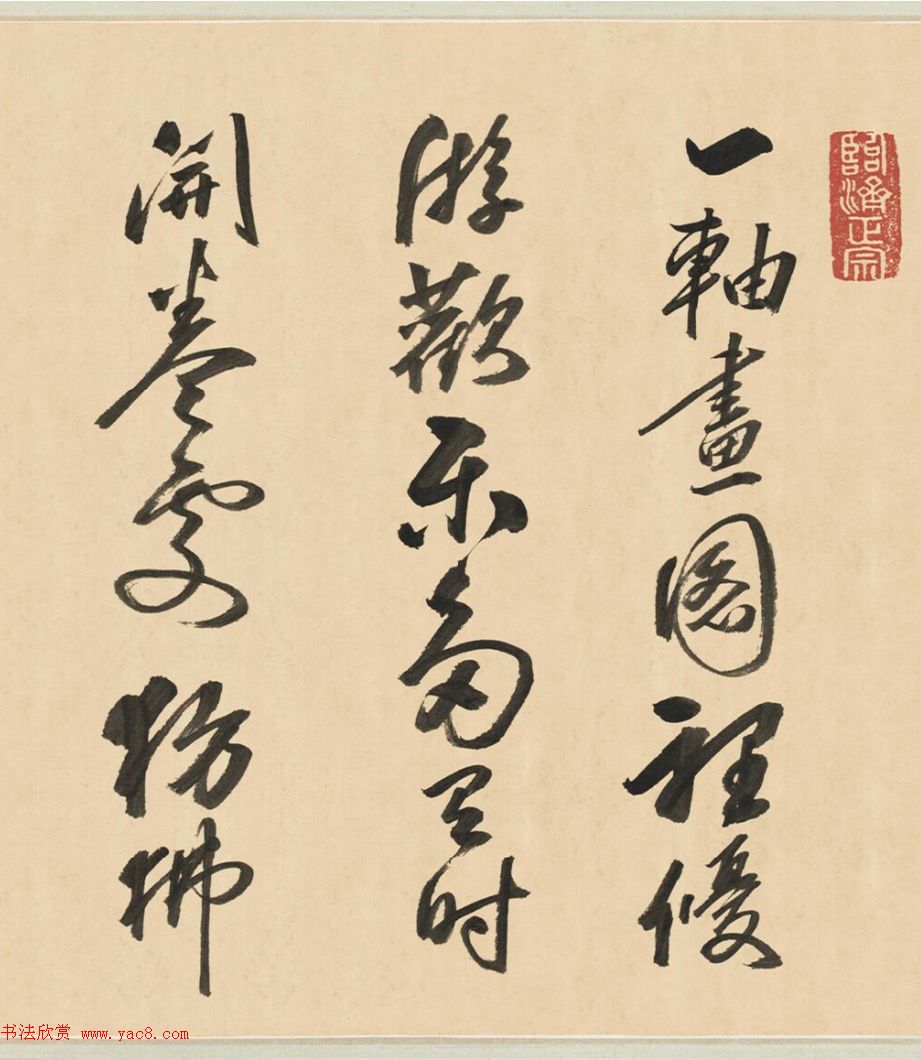 臨濟正宗
一軸畫圖裡優
游歡樂时
開卷處彷彿
书法欣赏 www.yac8.com